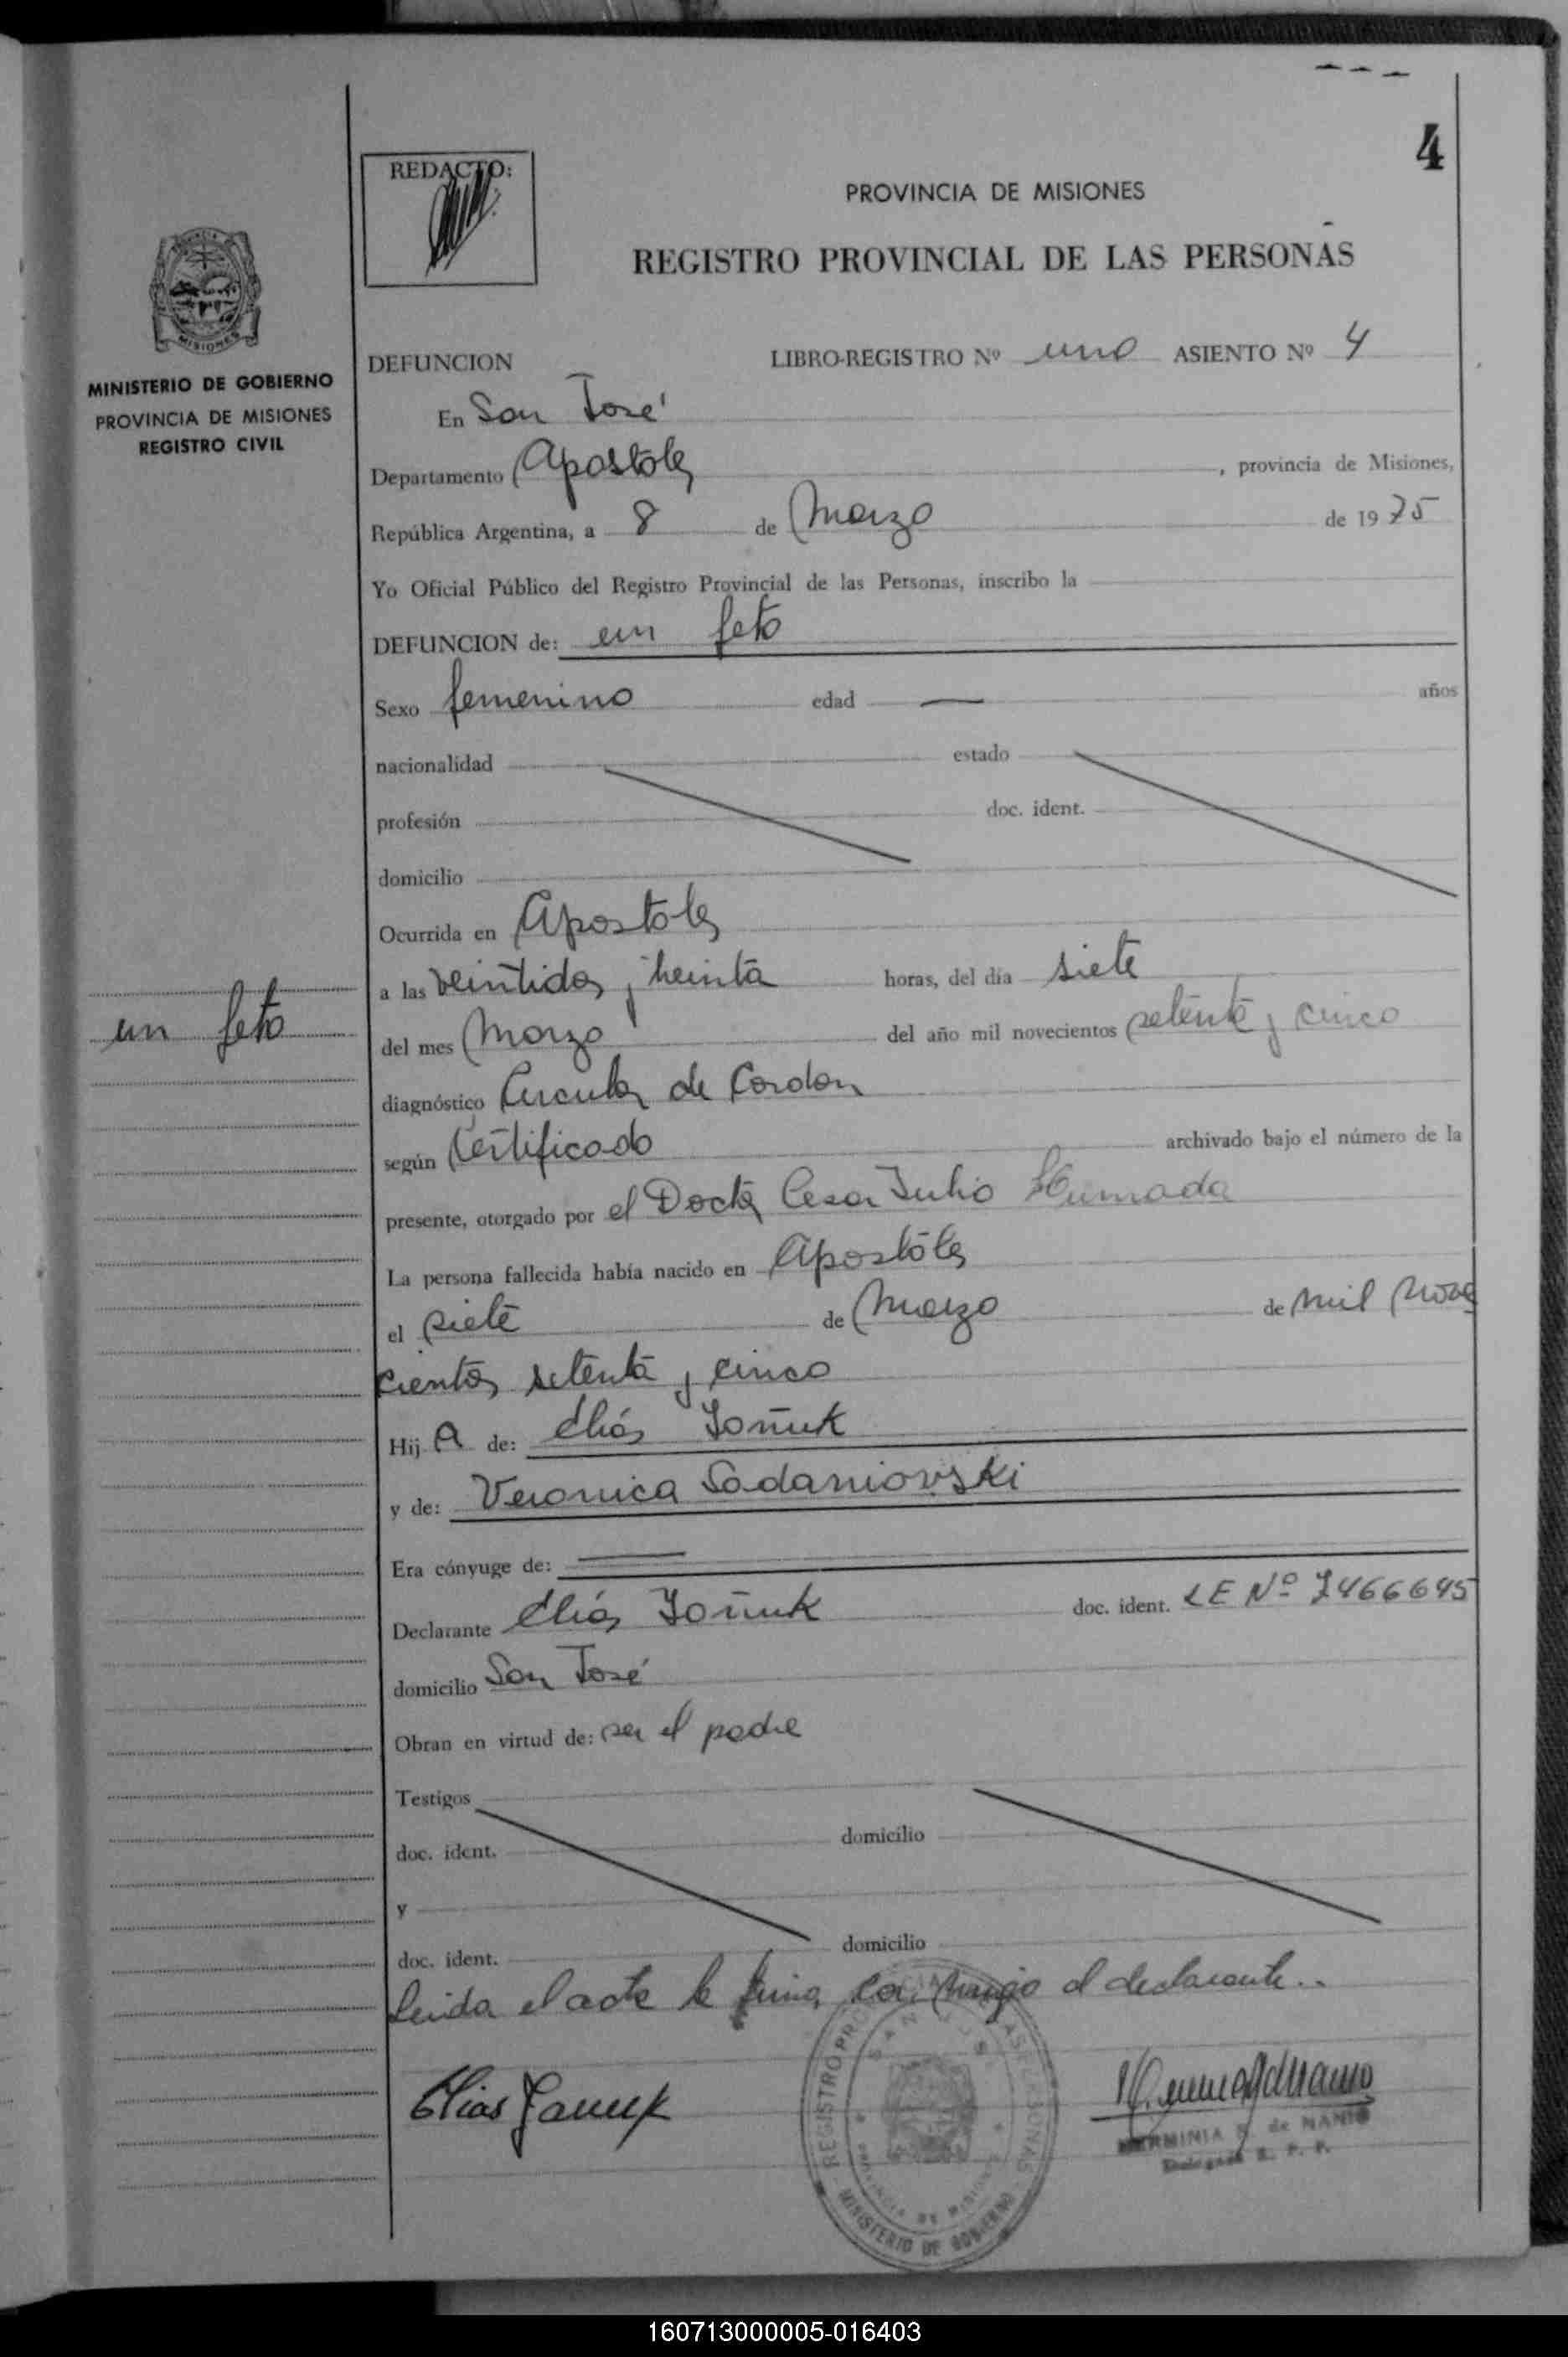 4
REDACTO:
PROVINCIA DE MISIONES
REGISTRO PROVINCIAL DE LAS PERSONAS
MISIONES
MINISTERIO DE GOBIERNO
PROVINCIA DE MISIONES
REGISTRO CIVIL
DEFUNCION LIBRO-REGISTRO Nº uno ASIENTO Nº 4
En San José
Departamento Apostoles, provincia de Misiones,
República Argentina, a 8 de Marzo de 1975
Yo Oficial Público del Registro Provincial de las Personas, inscribo la
DEFUNCION de: un feto
Sexo femenino edad — años
nacionalidad estado
profesión doc. ident.
domicilio
Ocurrida en Apostoles
a las veintidos y treinta horas, del día siete
un feto
del mes Marzo del año mil novecientos setenta y cinco
diagnóstico Circular de Cordon
según Certificado archivado bajo el número de la
presente, otorgado por el Doctor Cesar Julio Humada
La persona fallecida había nacido en Apostoles
el siete de Marzo de mil nove
cientos setenta y cinco
Hij A de: Elías
y de: Veronica Sadaniovski
Era cónyuge de:
Declarante Elías doc. ident. LE Nº 7466645
domicilio San José
Obran en virtud de: ser el padre
Testigos
doc. ident. domicilio
y
doc. ident. domicilio
Leida el acta la firma conmigo el declarante..
Elias
REGISTRO PROVINCIAL DE LAS PERSONAS
PROVINCIA DE MISIONES
MINISTERIO DE GOBIERNO
HERMINIA de NANIO
Delegada R. P. P.
160713000005-016403